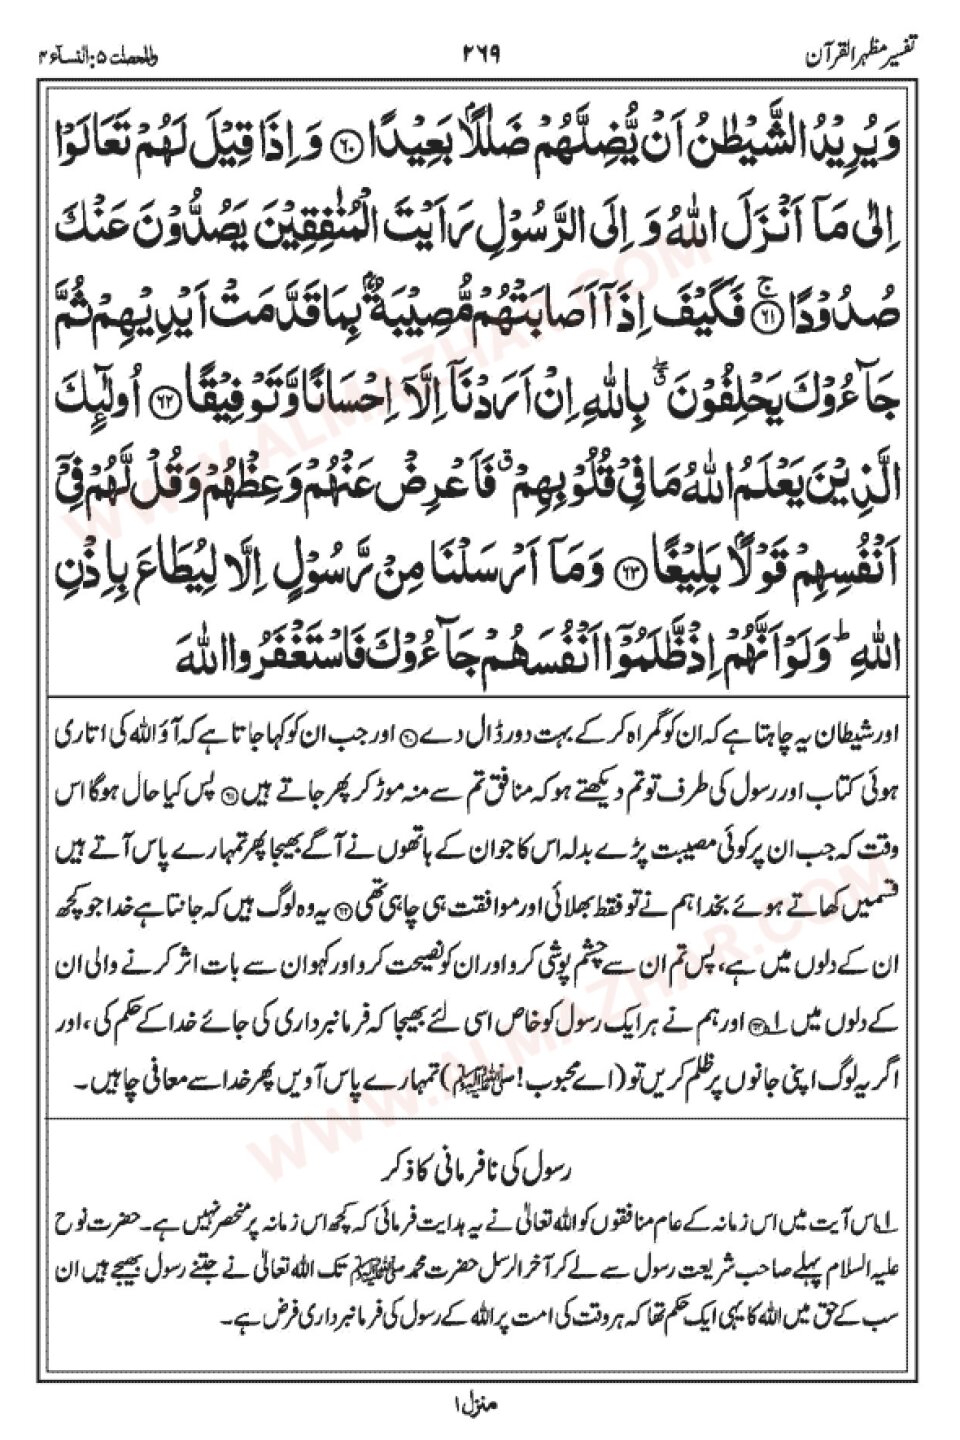 تفسیر مظہر القرآن
۲۶۹
والمحصنٰت ۵: النسآء ۴
وَ يُرِيْدُ الشَّيْطٰنُ اَنْ يُّضِلَّهُمْ ضَلٰلًاۢ بَعِيْدًا ﴿۶۰﴾ وَ اِذَا قِيْلَ لَهُمْ تَعَالَوْا
اِلٰى مَاۤ اَنْزَلَ اللّٰهُ وَ اِلَى الرَّسُوْلِ رَاَيْتَ الْمُنٰفِقِيْنَ يَصُدُّوْنَ عَنْكَ
صُدُوْدًا ﴿۶۱﴾ۚ فَكَيْفَ اِذَاۤ اَصَابَتْهُمْ مُّصِيْبَةٌۢ بِمَا قَدَّمَتْ اَيْدِيْهِمْ ثُمَّ
جَآءُوْكَ يَحْلِفُوْنَ ۖۗ بِاللّٰهِ اِنْ اَرَدْنَاۤ اِلَّاۤ اِحْسَانًا وَّ تَوْفِيْقًا ﴿۶۲﴾ اُولٰٓئِكَ
الَّذِيْنَ يَعْلَمُ اللّٰهُ مَا فِيْ قُلُوْبِهِمْ ۗ فَاَعْرِضْ عَنْهُمْ وَعِظْهُمْ وَقُلْ لَّهُمْ فِيْۤ
اَنْفُسِهِمْ قَوْلًاۢ بَلِيْغًا ﴿۶۳﴾ وَ مَاۤ اَرْسَلْنَا مِنْ رَّسُوْلٍ اِلَّا لِيُطَاعَ بِاِذْنِ
اللّٰهِ ؕ وَلَوْ اَنَّهُمْ اِذْ ظَّلَمُوْۤا اَنْفُسَهُمْ جَآءُوْكَ فَاسْتَغْفَرُوا اللّٰهَ
اور شیطان یہ چاہتا ہے کہ ان کو گمراہ کر کے بہت دور ڈال دے ﴿۶۰﴾ اور جب ان کو کہا جاتا ہے کہ آؤ اللہ کی اتاری
ہوئی کتاب اور رسول کی طرف تو تم دیکھتے ہو کہ منافق تم سے منہ موڑ کر پھر جاتے ہیں ﴿۶۱﴾ پس کیا حال ہوگا اس
وقت کہ جب ان پر کوئی مصیبت پڑے بدلہ اس کا جو ان کے ہاتھوں نے آگے بھیجا پھر تمہارے پاس آتے ہیں
قسمیں کھاتے ہوئے بخدا ہم نے تو فقط بھلائی اور موافقت ہی چاہی تھی ﴿۶۲﴾ یہ وہ لوگ ہیں کہ جانتا ہے خدا جو کچھ
ان کے دلوں میں ہے، پس تم ان سے چشم پوشی کرو اور ان کو نصیحت کرو اور کہو ان سے بات اثر کرنے والی ان
کے دلوں میں ۱؎ ﴿۶۳﴾ اور ہم نے ہر ایک رسول کو خاص اسی لئے بھیجا کہ فرمانبرداری کی جائے خدا کے حکم کی، اور
اگر یہ لوگ اپنی جانوں پر ظلم کریں تو (اے محبوب! ﷺ) تمہارے پاس آویں پھر خدا سے معافی چاہیں۔
رسول کی نافرمانی کا ذکر
۱؎ اس آیت میں اس زمانہ کے عام منافقوں کو اللہ تعالیٰ نے یہ ہدایت فرمائی کہ کچھ اس زمانہ پر منحصر نہیں ہے۔ حضرت نوح
علیہ السلام پہلے صاحب شریعت رسول سے لے کر آخر الرسل حضرت محمد ﷺ تک اللہ تعالیٰ نے جتنے رسول بھیجے ہیں ان
سب کے حق میں اللہ کا یہی ایک حکم تھا کہ ہر وقت کی امت پر اللہ کے رسول کی فرمانبرداری فرض ہے۔
منزل ۱
WWW.ALMAZHAR.COM
WWW.ALMAZHAR.COM